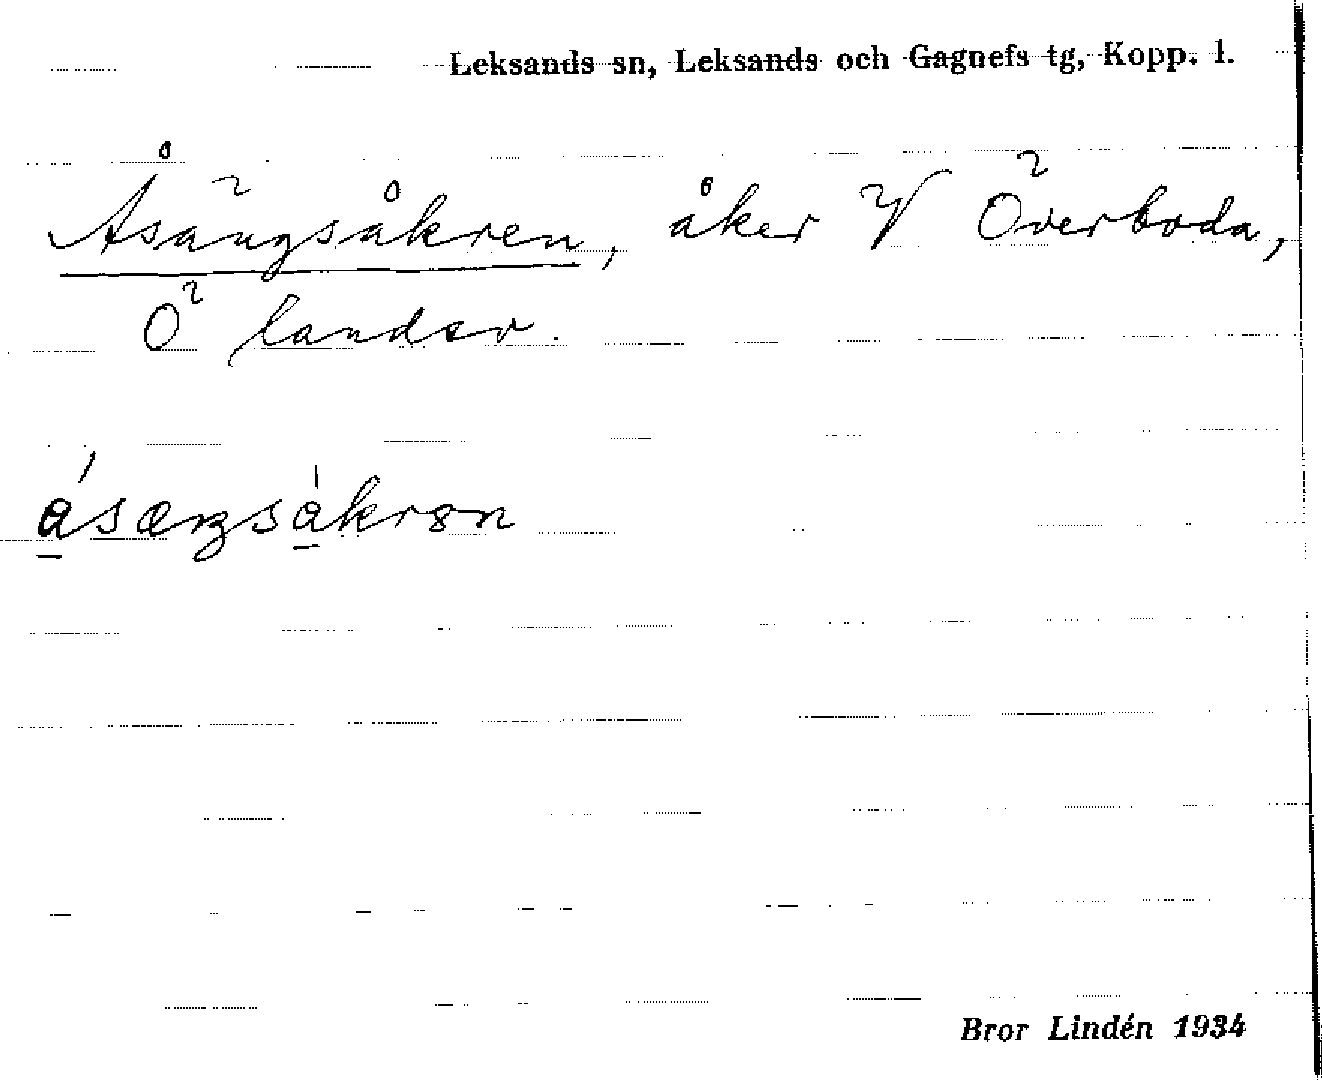 Leksands sn, Leksands och Gagnefs tg, Kopp. l.
Åsängsåkren, åker V Överboda,
Ö landsv.
Bror Lindén 1934